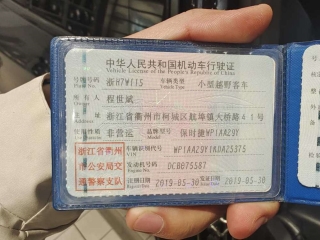 中华人民共和国机动车行驶证
Vehicle License of the People's Republic of China
号牌号码 浙H7Y115 车辆类型 小型越野客车
Vehicle Type
所有人 程世斌
浙江省衢州市柯城区航埠镇大桥路41号
使用性质 非营运 品牌型号 保时捷WP1AA29Y
浙江省衢州 车辆识别代号 WP1AA29Y1KDA25375
VIN
市公安局交 发动机号码 DCB075587
通警察支队 注册日期 2019-05-30 2019-05-30